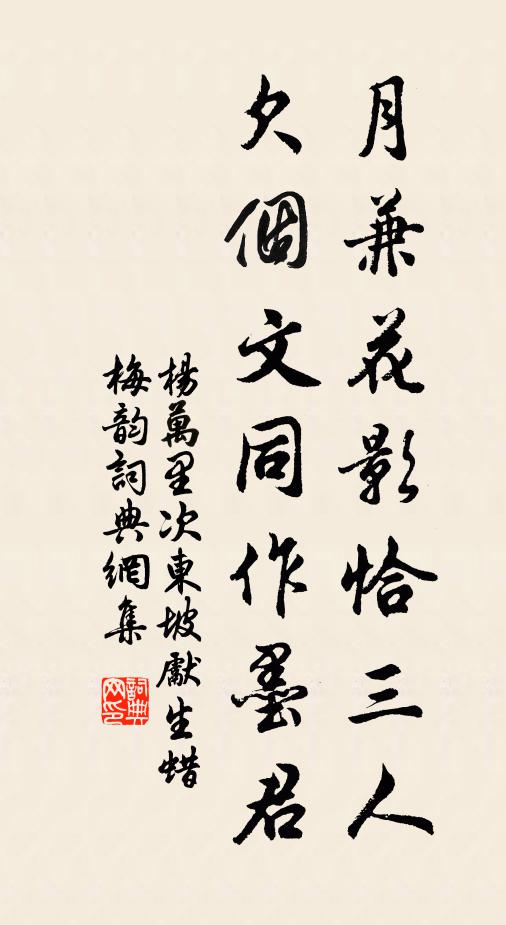 月兼花影恰三人
欠個文同作墨君
楊萬里次東坡獻生蜡
梅韵詞典網集
詞典
网印